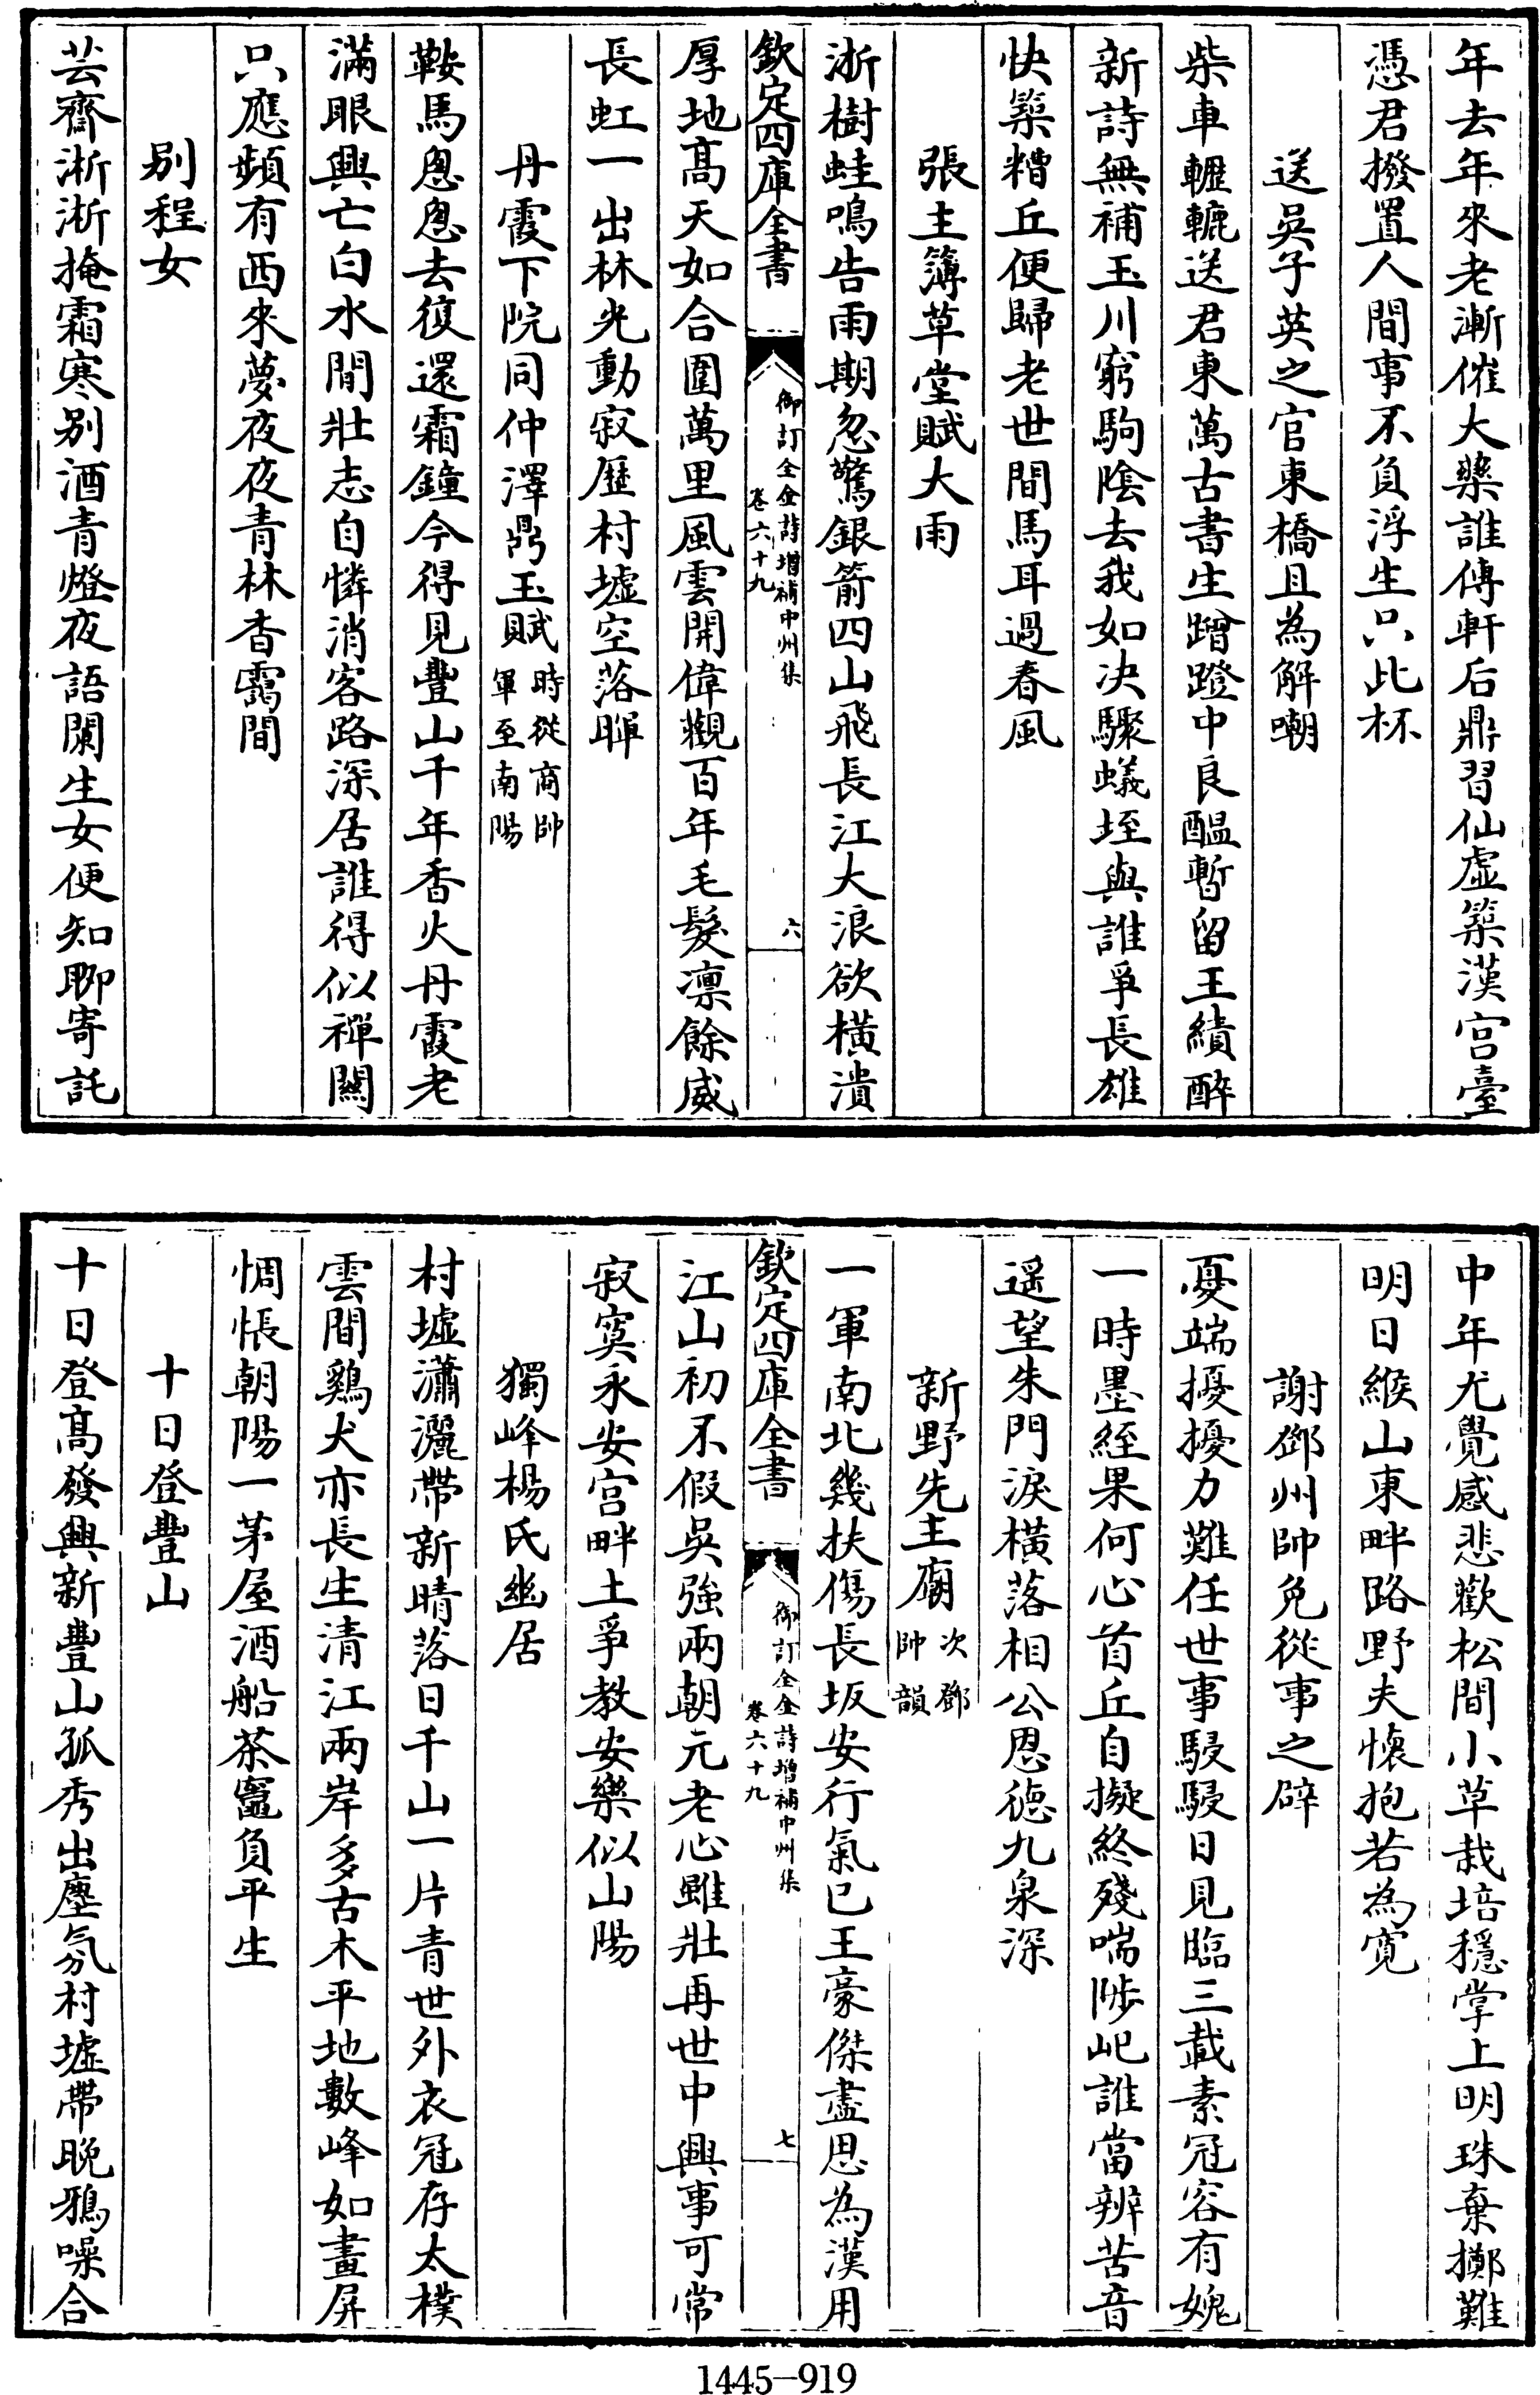 年去年來老漸催大藥誰傳軒后鼎習仙虛築漢宮臺
憑君撥置人間事不負浮生只此杯
送吳子英之官東橋且為解嘲
柴車轣轆送君東萬古書生蹭蹬中良醖暫留王績醉
新詩無補玉川窮駒陰去我如决驟蟻垤與誰爭長雄
快築糟丘便歸老世間馬耳過春風
張主簿草堂賦大雨
淅樹蛙鳴告雨期忽驚銀箭四山飛長江大浪欲橫潰
欽定四庫全書
御訂全金詩增補中州集
卷六十九
六
厚地髙天如合圍萬里風雲開偉觀百年毛髮凛餘威
長虹一出林光動寂歷村墟空落暉
丹霞下院同仲澤鼎玉賦
時從商帥
軍至南陽
鞍馬悤悤去復還霜鐘今得見豐山千年香火丹霞老
滿眼興亡白水間壯志自憐消客路深居誰得似禪關
只應頻有西來夢夜夜青林杳靄間
别程女
芸齋淅淅掩霜寒别酒青燈夜語闌生女便知聊寄託
中年尤覺感悲歡松間小草栽培穩掌上明珠棄擲難
明日緱山東畔路野夫懷抱若為寛
謝鄧州帥免從事之辟
憂端擾擾力難任世事駸駸日見臨三載素冠容有媿
一時墨絰果何心首丘自擬終殘喘陟屺誰當辨苦音
遥望朱門淚橫落相公恩德九泉深
新野先主廟
次鄧
帥韻
一軍南北幾扶傷長坂安行氣已王豪傑盡思為漢用
欽定四庫全書
御訂全金詩增補中州集
卷六十九
七
江山初不假吳強兩朝元老心雖壯再世中興事可常
寂寞永安宫畔土爭教安樂似山陽
獨峰楊氏幽居
村墟瀟灑帶新晴落日千山一片青世外衣冠存太樸
雲間鷄犬亦長生清江兩岸多古木平地數峰如畫屏
惆悵朝陽一茅屋酒船茶竈負平生
十日登豐山
十日登髙發興新豐山孤秀出塵氛村墟帶晚鴉噪合
1445-919